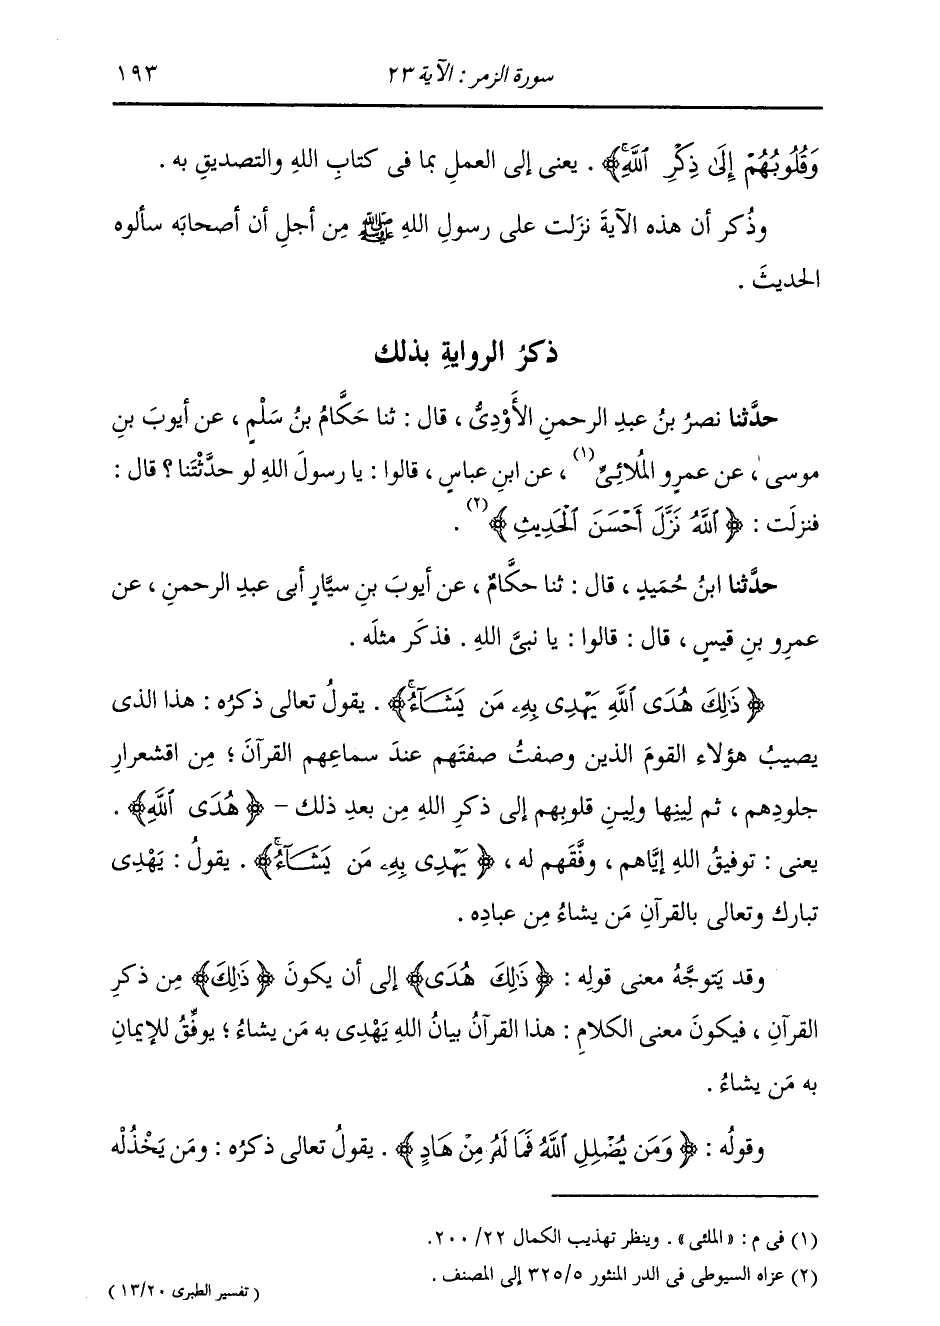 سورة الزمر : الآية ٢٣
١٩٣
وَقُلُوبُهُمْ إِلَىٰ ذِكْرِ ٱللَّهِۚ﴾ . يعنى إلى العملِ بما فى كتابِ اللهِ والتصديقِ به .
وذُكر أن هذه الآيةَ نزَلت على رسولِ اللهِ ﷺ مِن أجلِ أن أصحابَه سألوه
الحديثَ .
ذكرُ الروايةِ بذلك
حدَّثنا نصرُ بنُ عبدِ الرحمنِ الأَوْدِىُّ ، قال : ثنا حَكَّامُ بنُ سَلْمٍ ، عن أيوبَ بنِ
موسى ، عن عمرٍو المُلائِىِّ(١) ، عن ابنِ عباسٍ ، قالوا : يا رسولَ اللهِ لو حدَّثْتَنا ؟ قال :
فنزلَت : ﴿ ٱللَّهُ نَزَّلَ أَحْسَنَ ٱلْحَدِيثِ ﴾(٢) .
حدَّثنا ابنُ حُمَيدٍ ، قال : ثنا حكَّامٌ ، عن أيوبَ بنِ سيَّارٍ أبى عبدِ الرحمنِ ، عن
عمرِو بنِ قيسٍ ، قال : قالوا : يا نبىَّ اللهِ . فذكَر مثلَه .
﴿ ذَٰلِكَ هُدَى ٱللَّهِ يَهْدِى بِهِۦ مَن يَشَآءُۚ﴾ . يقولُ تعالى ذكرُه : هذا الذى
يصيبُ هؤلاء القومَ الذين وصفتُ صفتَهم عندَ سماعِهم القرآنَ ؛ مِن اقشعرارِ
جلودِهم ، ثم لِينِها ولِينِ قلوبِهم إلى ذكرِ اللهِ مِن بعدِ ذلك – ﴿ هُدَى ٱللَّهِ﴾ .
يعنى : توفيقُ اللهِ إيَّاهم ، وفَّقَهم له ، ﴿ يَهْدِى بِهِۦ مَن يَشَآءُۚ﴾ . يقولُ : يَهْدِى
تبارك وتعالى بالقرآنِ مَن يشاءُ مِن عبادِه .
وقد يَتوجَّهُ معنى قولِه : ﴿ ذَٰلِكَ هُدَى﴾ إلى أن يكونَ ﴿ ذَٰلِكَ﴾ مِن ذكرِ
القرآنِ ، فيكونَ معنى الكلامِ : هذا القرآنُ بيانُ اللهِ يَهْدِى به مَن يشاءُ ؛ يوفِّقُ للإيمانِ
به مَن يشاءُ .
وقولُه : ﴿ وَمَن يُضْلِلِ ٱللَّهُ فَمَا لَهُۥ مِنْ هَادٍ ﴾ . يقولُ تعالى ذكرُه : ومَن يَخْذُلْه
(١) فى م : « الملئى » . وينظر تهذيب الكمال ٢٢/ ٢٠٠.
(٢) عزاه السيوطى فى الدر المنثور ٣٢٥/٥ إلى المصنف .
( تفسير الطبرى ١٣/٢٠ )